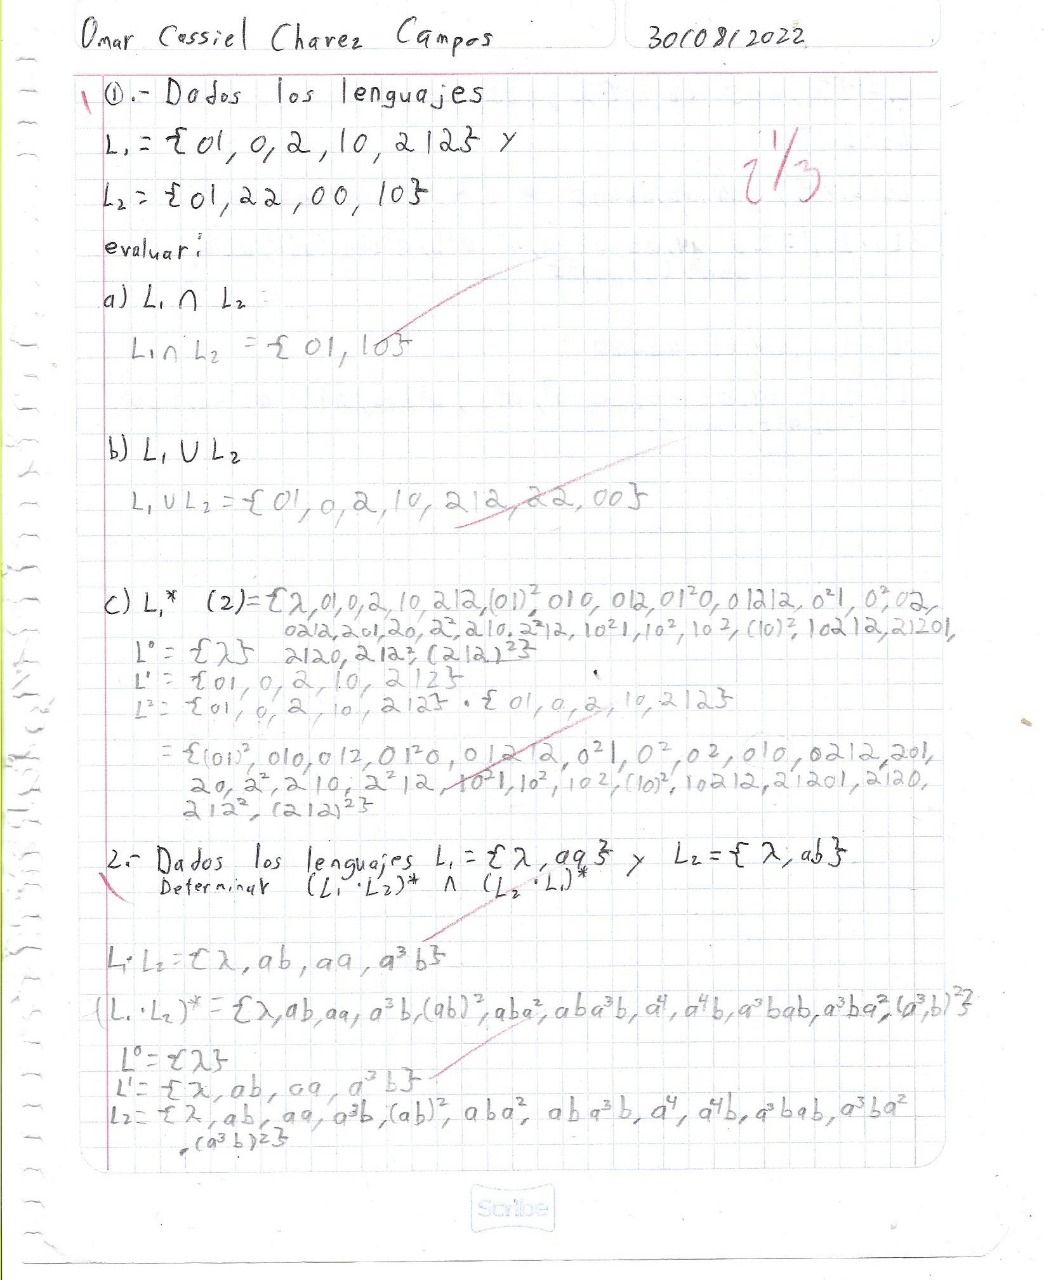 Omar Cassiel Chavez Campos 30/08/2022
①.- Dados los lenguajes
L₁ = {01, 0, 2, 10, 212} y
L₂ = {01, 22, 00, 10}
evaluar:
a) L₁ ∩ L₂
L₁ ∩ L₂ = {01, 10}
b) L₁ ∪ L₂
L₁ ∪ L₂ = {01, 0, 2, 10, 212, 22, 00}
c) L₁* (2) = {λ, 01, 0, 2, 10, 212, (01)², 010, 012, 01²0, 01212, 0²1, 0², 02,
0212, 201, 20, 2², 210, 2²12, 10²1, 10², 102, (10)², 10212, 21201,
L⁰ = {λ} 2120, 212², (212)²}
L¹ = {01, 0, 2, 10, 212}
L² = {01, 0, 2, 10, 212} · {01, 0, 2, 10, 212}
= {(01)², 010, 012, 01²0, 01212, 0²1, 0², 02, 010, 0212, 201,
20, 2², 210, 2²12, 10²1, 10², 102, (10)², 10212, 21201, 2120,
212², (212)²}
2.- Dados los lenguajes L₁ = {λ, aa} y L₂ = {λ, ab}
Determinar (L₁ · L₂)* ∩ (L₂ · L₁)*
L₁·L₂ = {λ, ab, aa, a³b}
(L₁·L₂)* = {λ, ab, aa, a³b, (ab)², aba², aba³b, a⁴, a⁴b, a³bab, a³ba², (a³b)²}
L⁰ = {λ}
L¹ = {λ, ab, aa, a³b}
L2 = {λ, ab, aa, a³b, (ab)², aba², aba³b, a⁴, a⁴b, a³bab, a³ba²
, (a³b)²}
Scribe